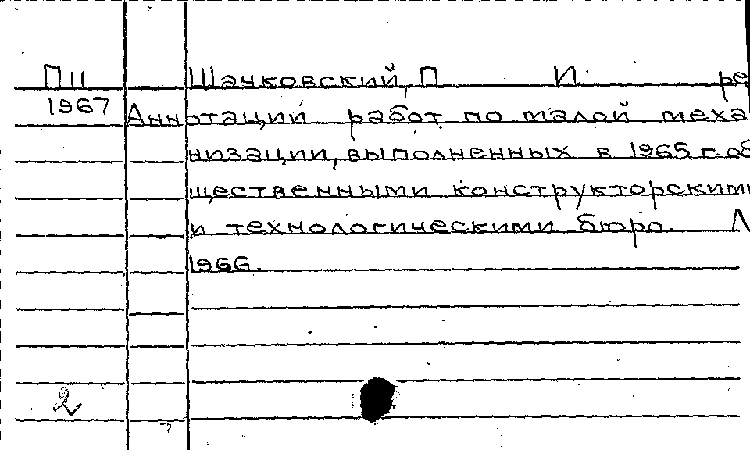 П11 Шачковский, П И ре
1967 Аннотации работ по малой меха
низации, выполненных в 1965 г. об
щественными конструкторскими
и технологическими бюро. Л
1966.
2